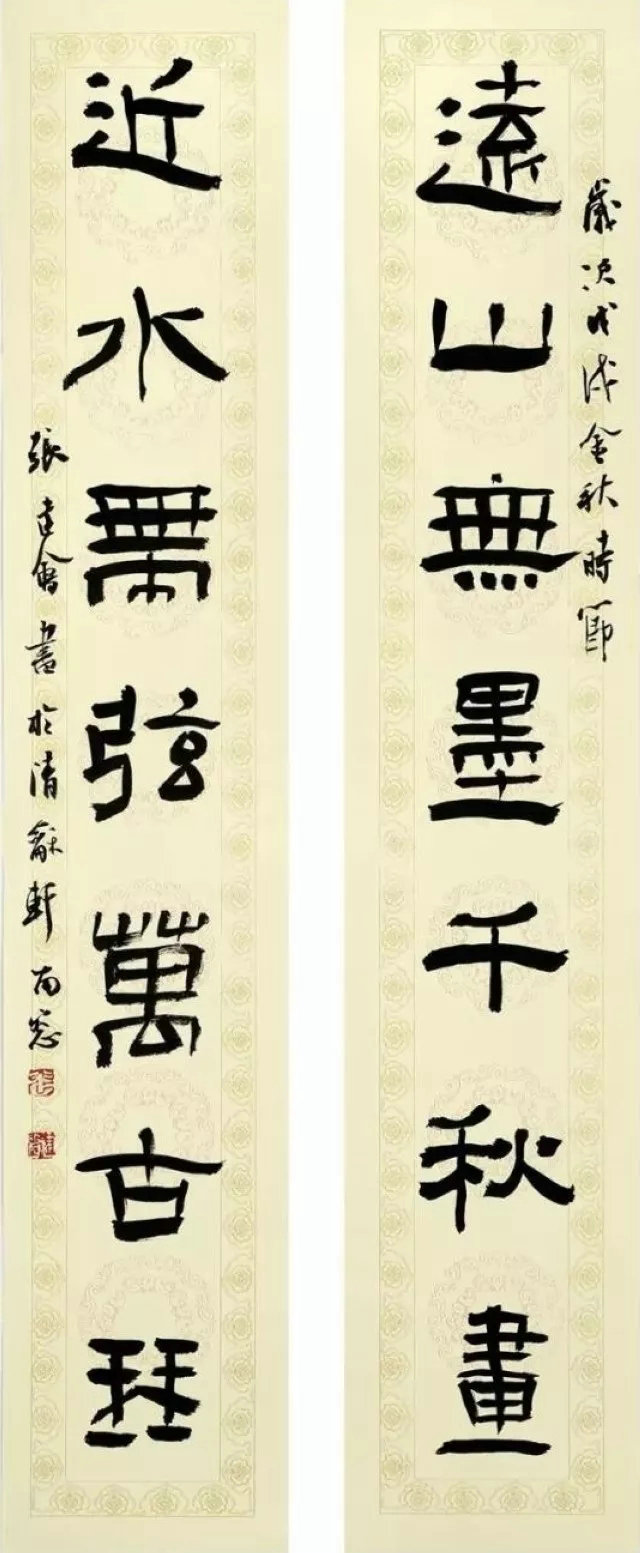 歲次戊戌金秋時節
遠山無墨千秋畫
近水無弦萬古琴
張建會書於清龢軒南窗